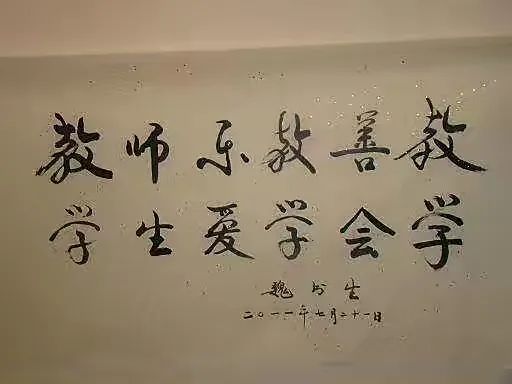 教师乐教善教
学生爱学会学
魏书生
二〇一一年七月二十一日